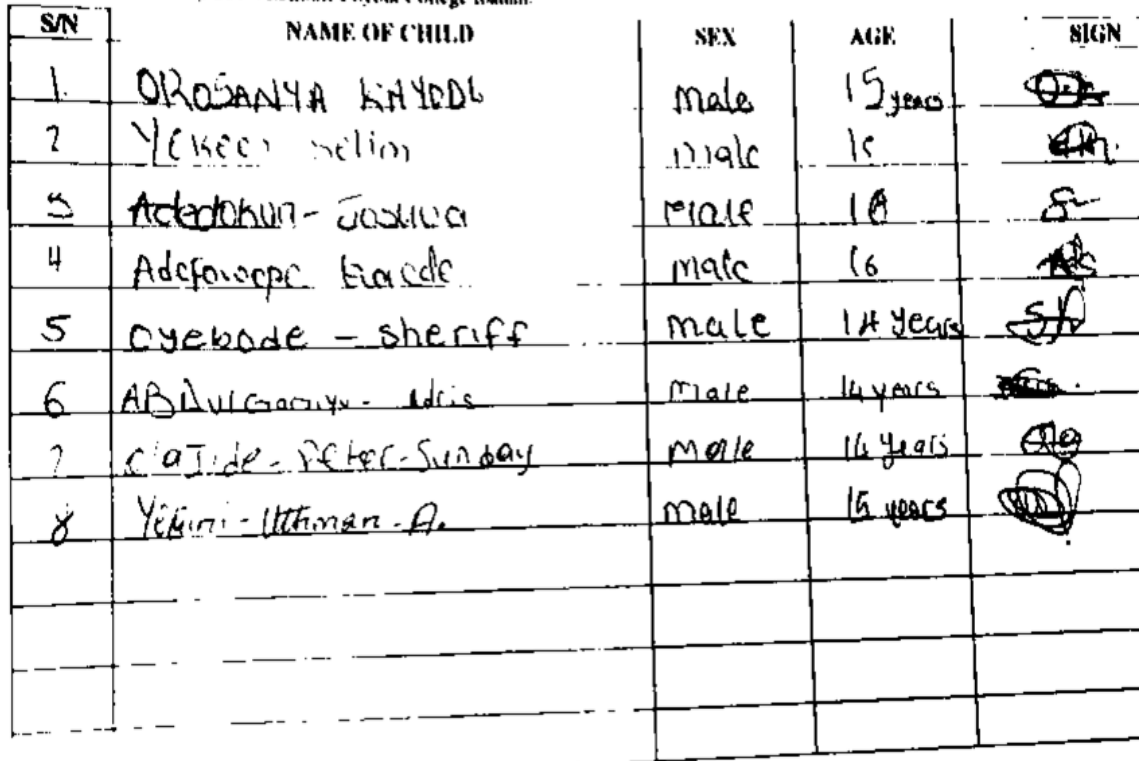 College
S/N NAME OF CHILD SEX AGE SIGN
1 OROSANYA KAYODE male 15 years
2 Yekeen Selim male
3 Adedokun - Joshua male 18
4 male 16
5 oyebode - sheriff male 14 years
6 ABDulGaniyu - Idris male 14 years
7 OlaJide - Peter - Sunday male 14 years
8 Yekini - Uthman - A. male 15 years